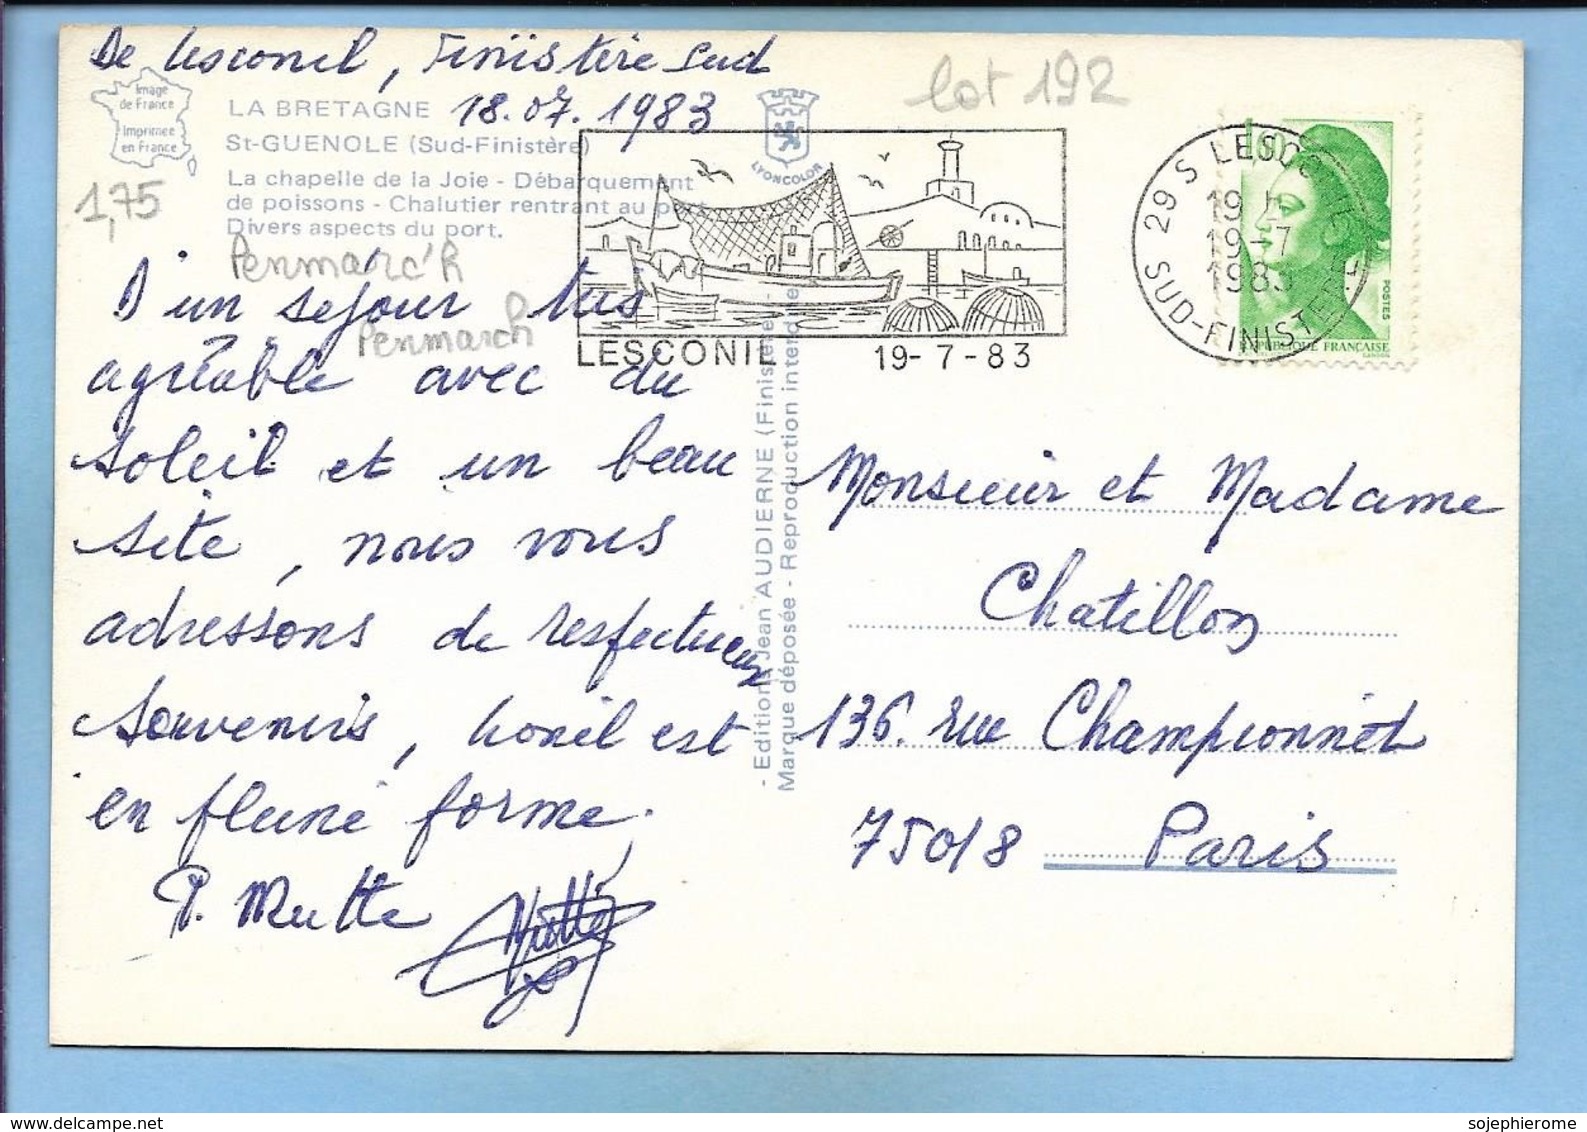 De Lesconil, Finistère Sud
18.07.1983
lot 192
Image
de France
Imprimée
en France
LA BRETAGNE
St-GUENOLE (Sud-Finistère)
La chapelle de la Joie - Débarquement
de poissons - Chalutier rentrant au port
Divers aspects du port.
LYONCOLOR
1,75
Penmarc'h
Penmarch
D'un séjour très
agréable avec du
soleil et un beau
site, nous vous
adressons de respectueux
souvenirs, Lionel est
en pleine forme.
P. Mutte
LESCONIL 19-7-83
29 S LESCONIL
19 H
19-7
1983
SUD-FINISTERE
1,60
POSTES
REPUBLIQUE FRANCAISE
- Editions Jean AUDIERNE (Finistère) -
Marque déposée - Reproduction interdite
Monsieur et Madame
Chatillon
136. rue Championnet
75018 Paris
sojephierome